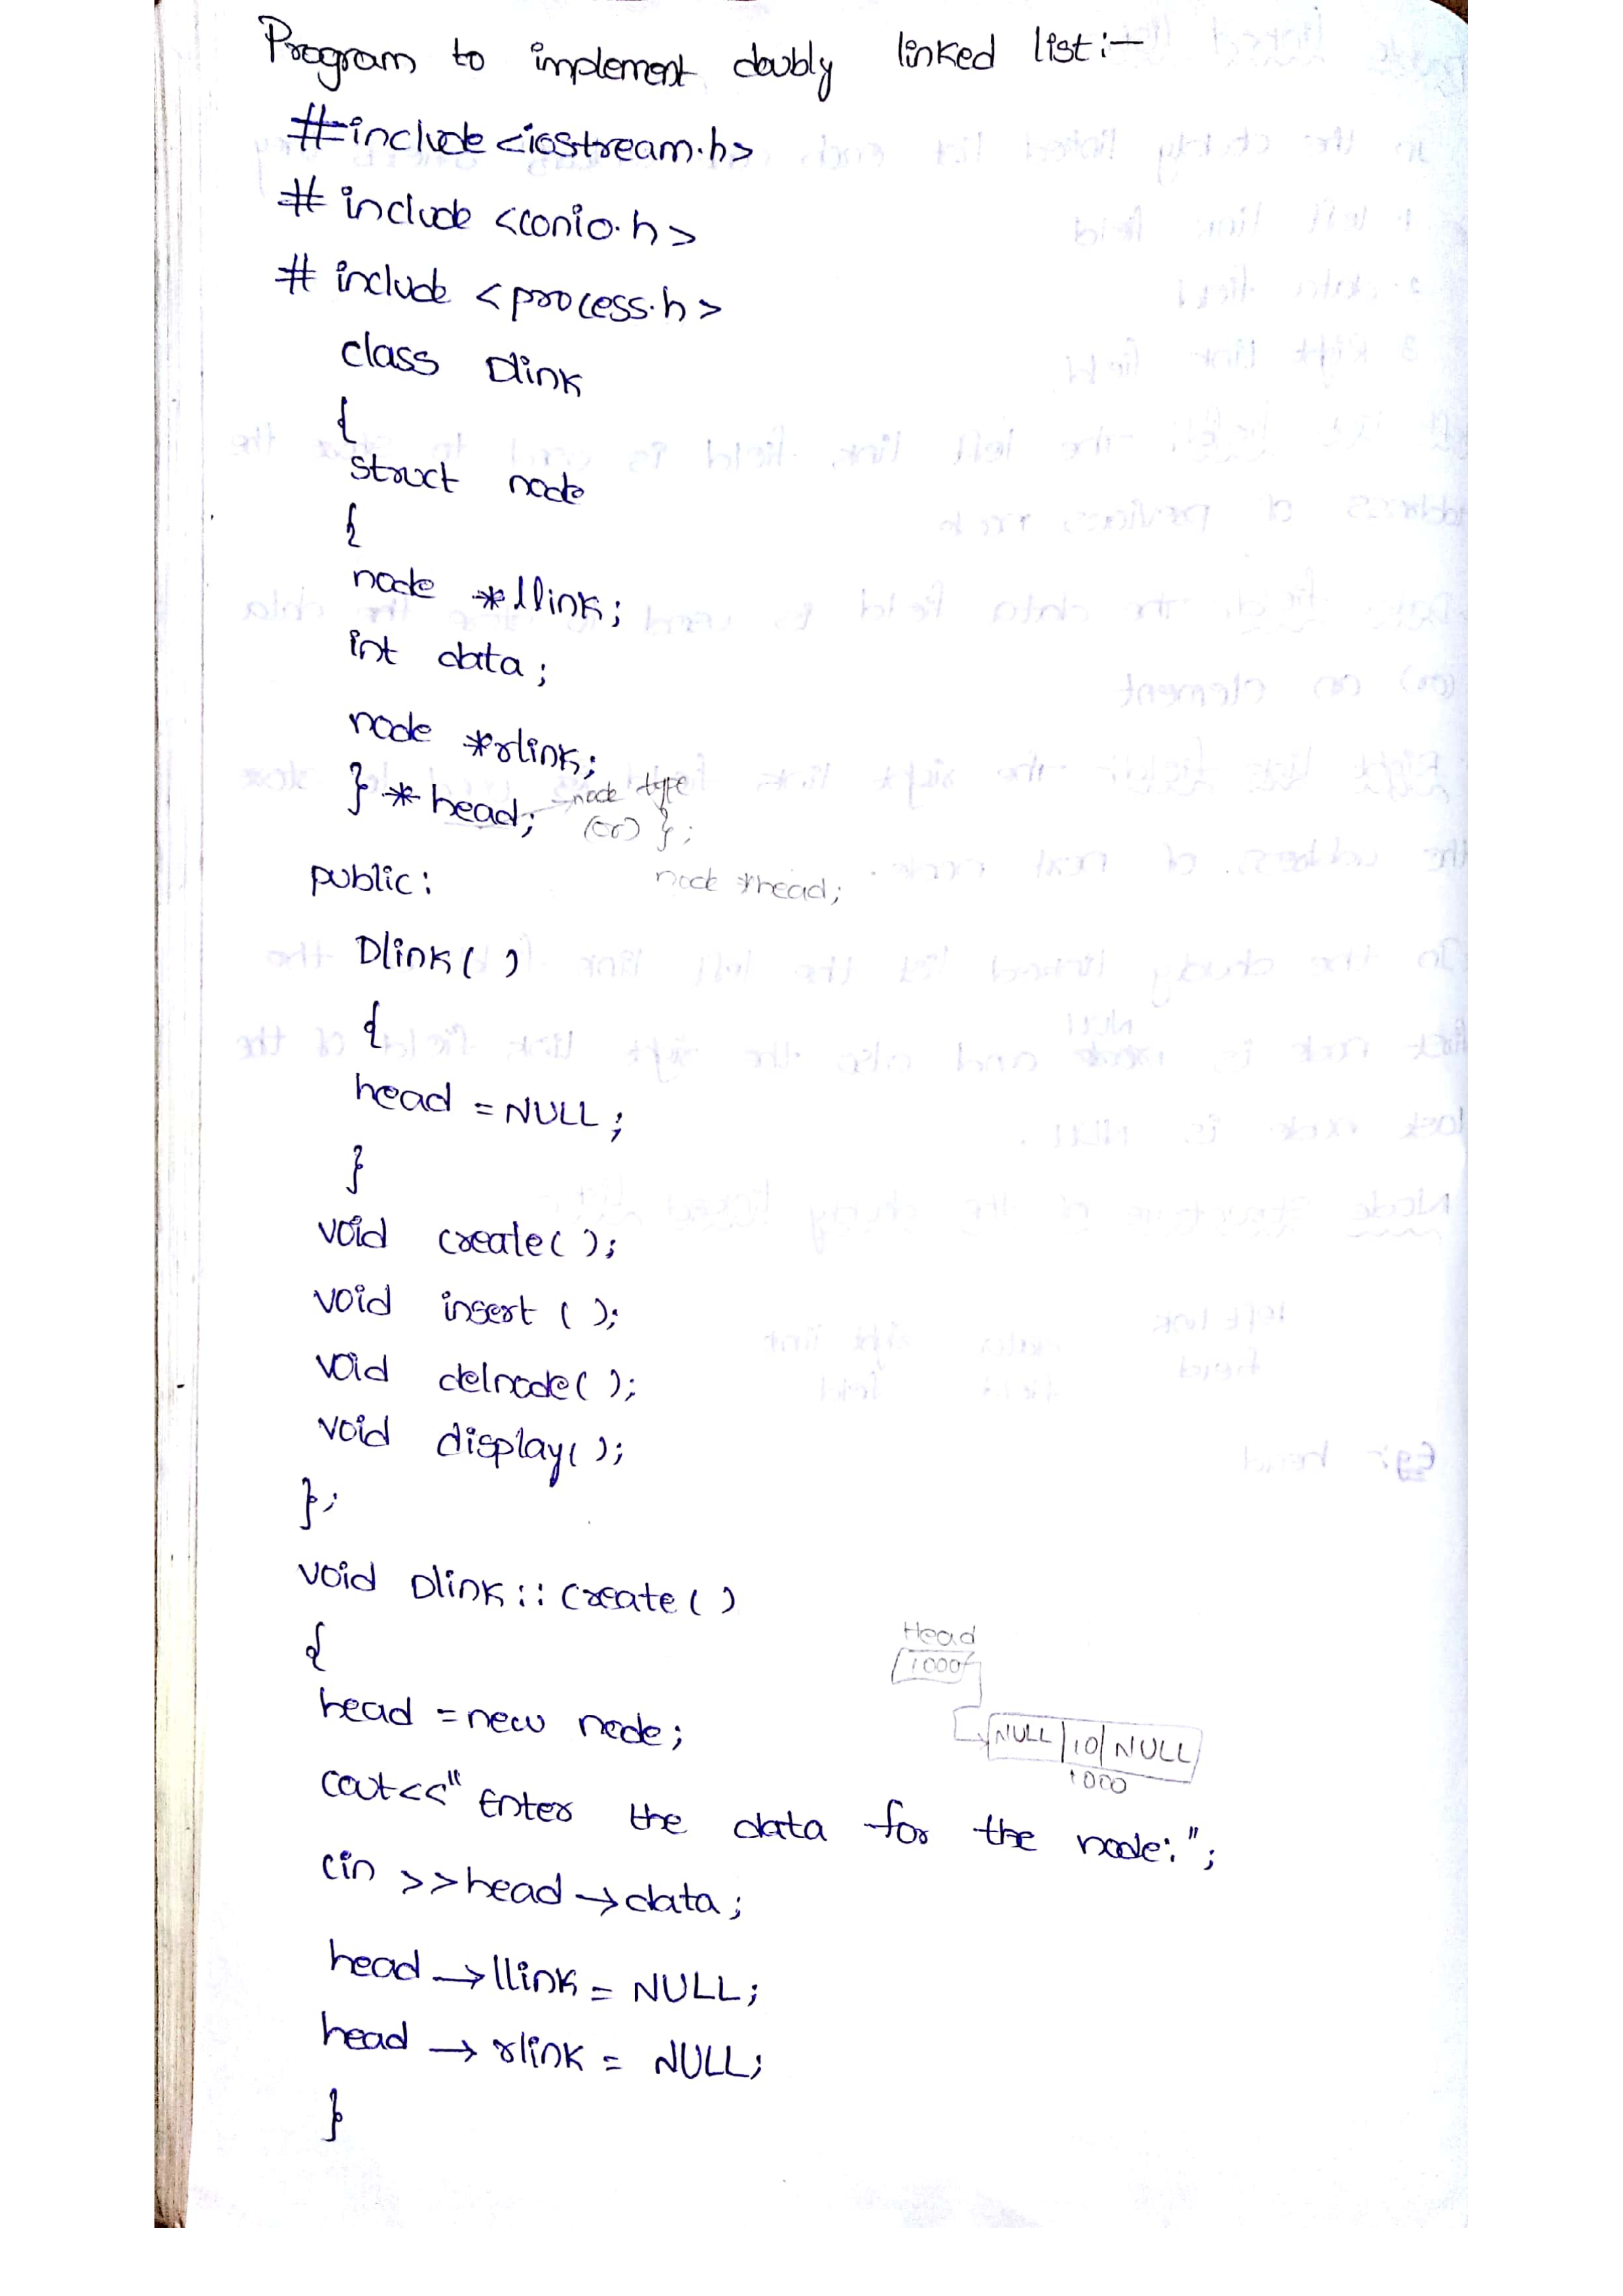 Program to implement doubly linked list:-
#include<iostream.h>
# include <conio.h>
# include <process.h>
class Dlink
{
struct node
{
node *llink;
int data;
node *rlink;
} * head; → node type
(or) };
node *head;
public:
Dlink( )
{
head = NULL;
}
void create( );
void insert ( );
void delnode( );
void display( );
};
void Dlink :: create ( )
{
Head
1000
head = new node;
NULL | 10 | NULL
1000
cout<<" Enter the data for the node:";
cin >>head →data;
head →llink = NULL;
head → rlink = NULL;
}